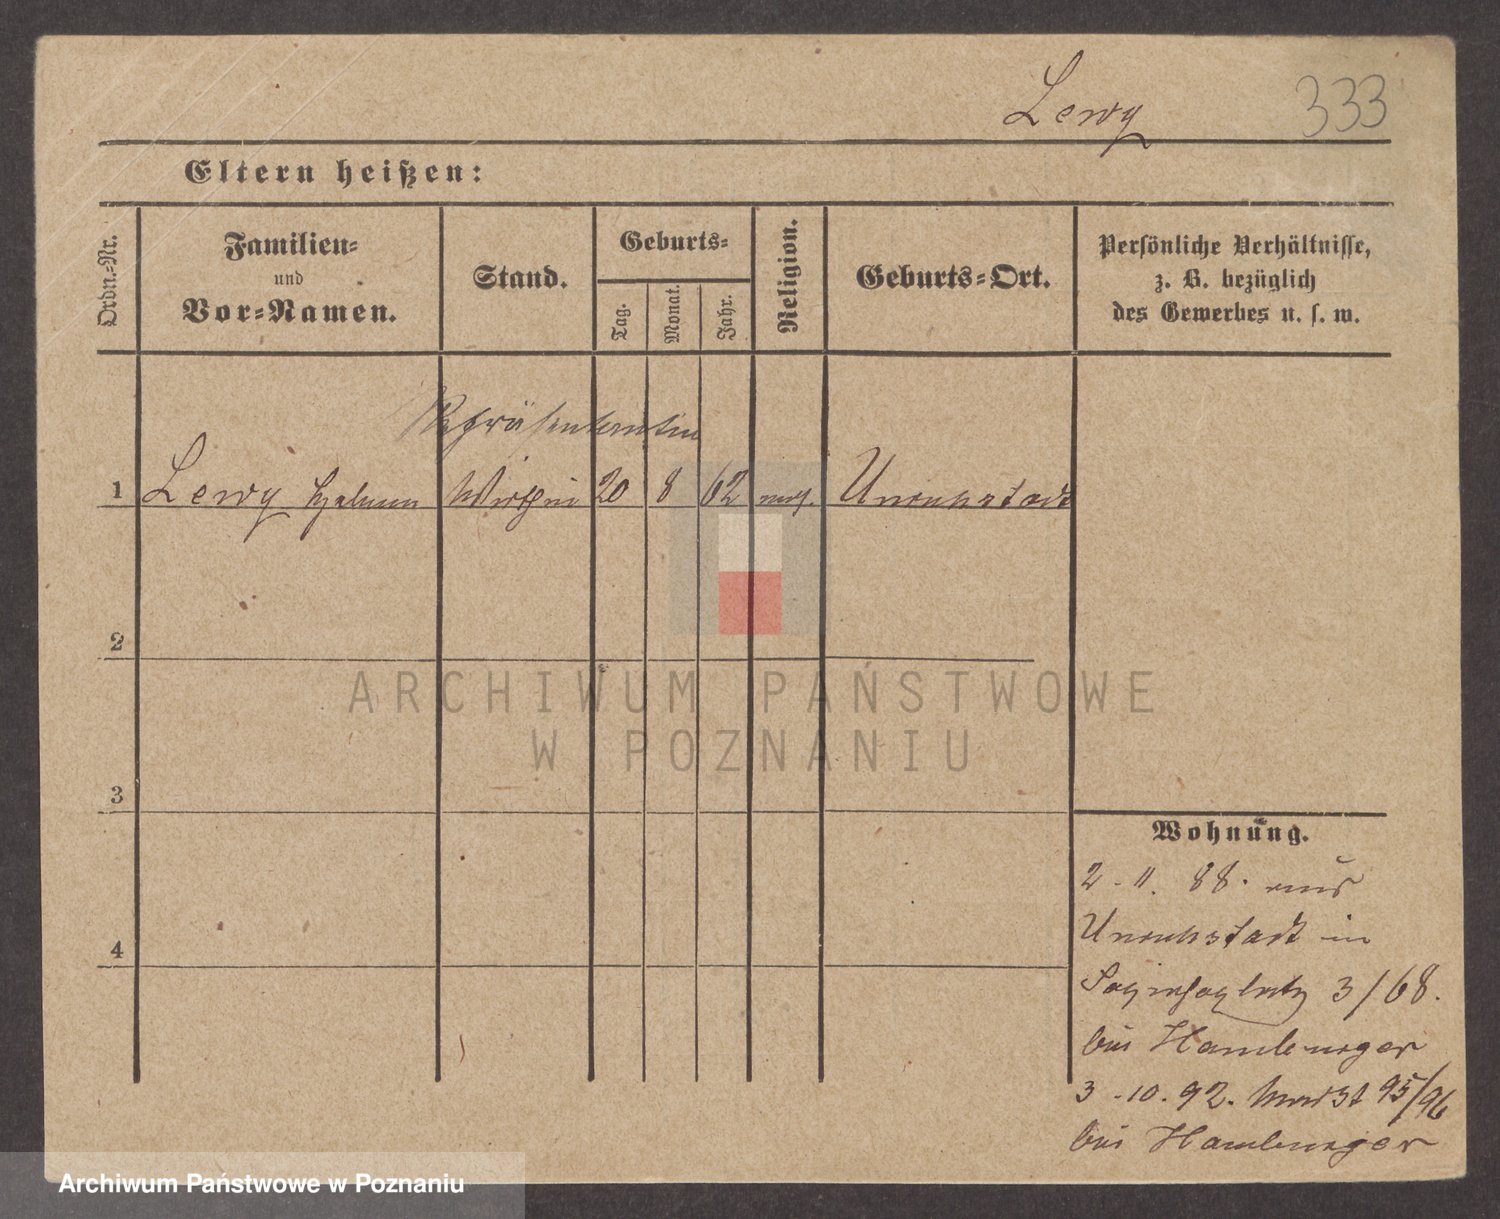 Lewy 333
Eltern heißen:
Ordn.-Nr.
Familien-
und
Vor-Namen.
Stand.
Geburts-
Tag.
Monat.
Jahr.
Religion.
Geburts-Ort.
Persönliche Verhältnisse,
z. B. bezüglich
des Gewerbes u. s. w.
Repräsentantin
1 Lewy Wirthin 20 8 62 mos. Unruhstadt
2
3
4
Wohnung.
2. 11. 88. aus
Unruhstadt in
3/68.
bei Hamburger
3. 10. 92. Markt 95/96
bei Hamburger
ARCHIWUM PAŃSTWOWE
W POZNANIU
Archiwum Państwowe w Poznaniu